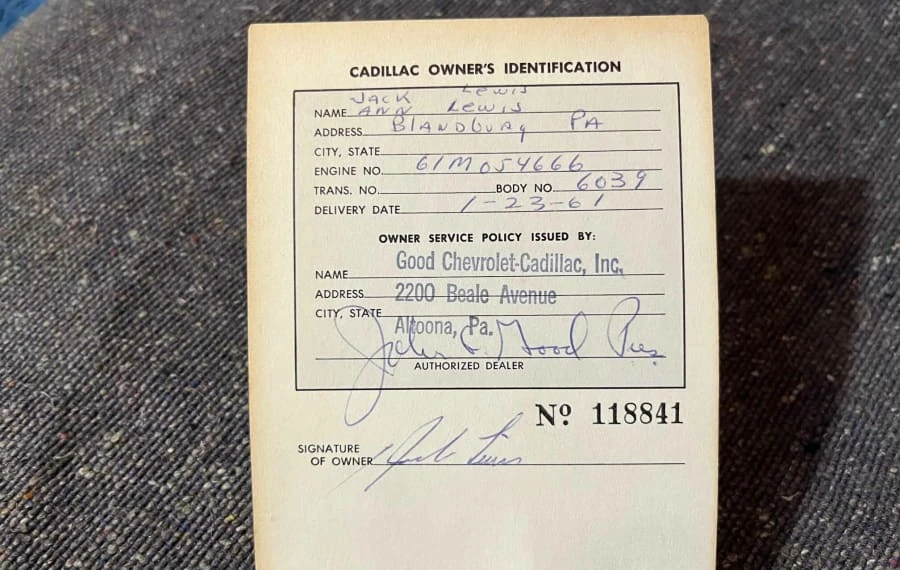 CADILLAC OWNER'S IDENTIFICATION
Jack Lewis
NAME Ann Lewis
ADDRESS Blandburg PA
CITY, STATE
ENGINE NO. 61M054666
TRANS. NO. BODY NO. 6039
DELIVERY DATE 1-23-61
OWNER SERVICE POLICY ISSUED BY:
NAME Good Chevrolet-Cadillac, Inc.
ADDRESS 2200 Beale Avenue
CITY, STATE Altoona, Pa.
John Good Pres.
AUTHORIZED DEALER
Nº 118841
SIGNATURE
OF OWNER Jack Lewis